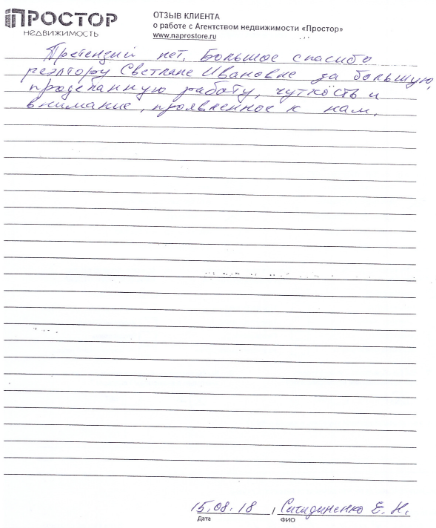 ПРОСТОР
НЕДВИЖИМОСТЬ
ОТЗЫВ КЛИЕНТА
о работе с Агентством недвижимости «Простор»
www.naprostore.ru
Претензий нет. Большое спасибо
риэлтору Светлане Ивановне за большую,
проделанную работу, чуткость и
внимание, проявленное к нам.
15.08.18, Е. Н.
Дата ФИО